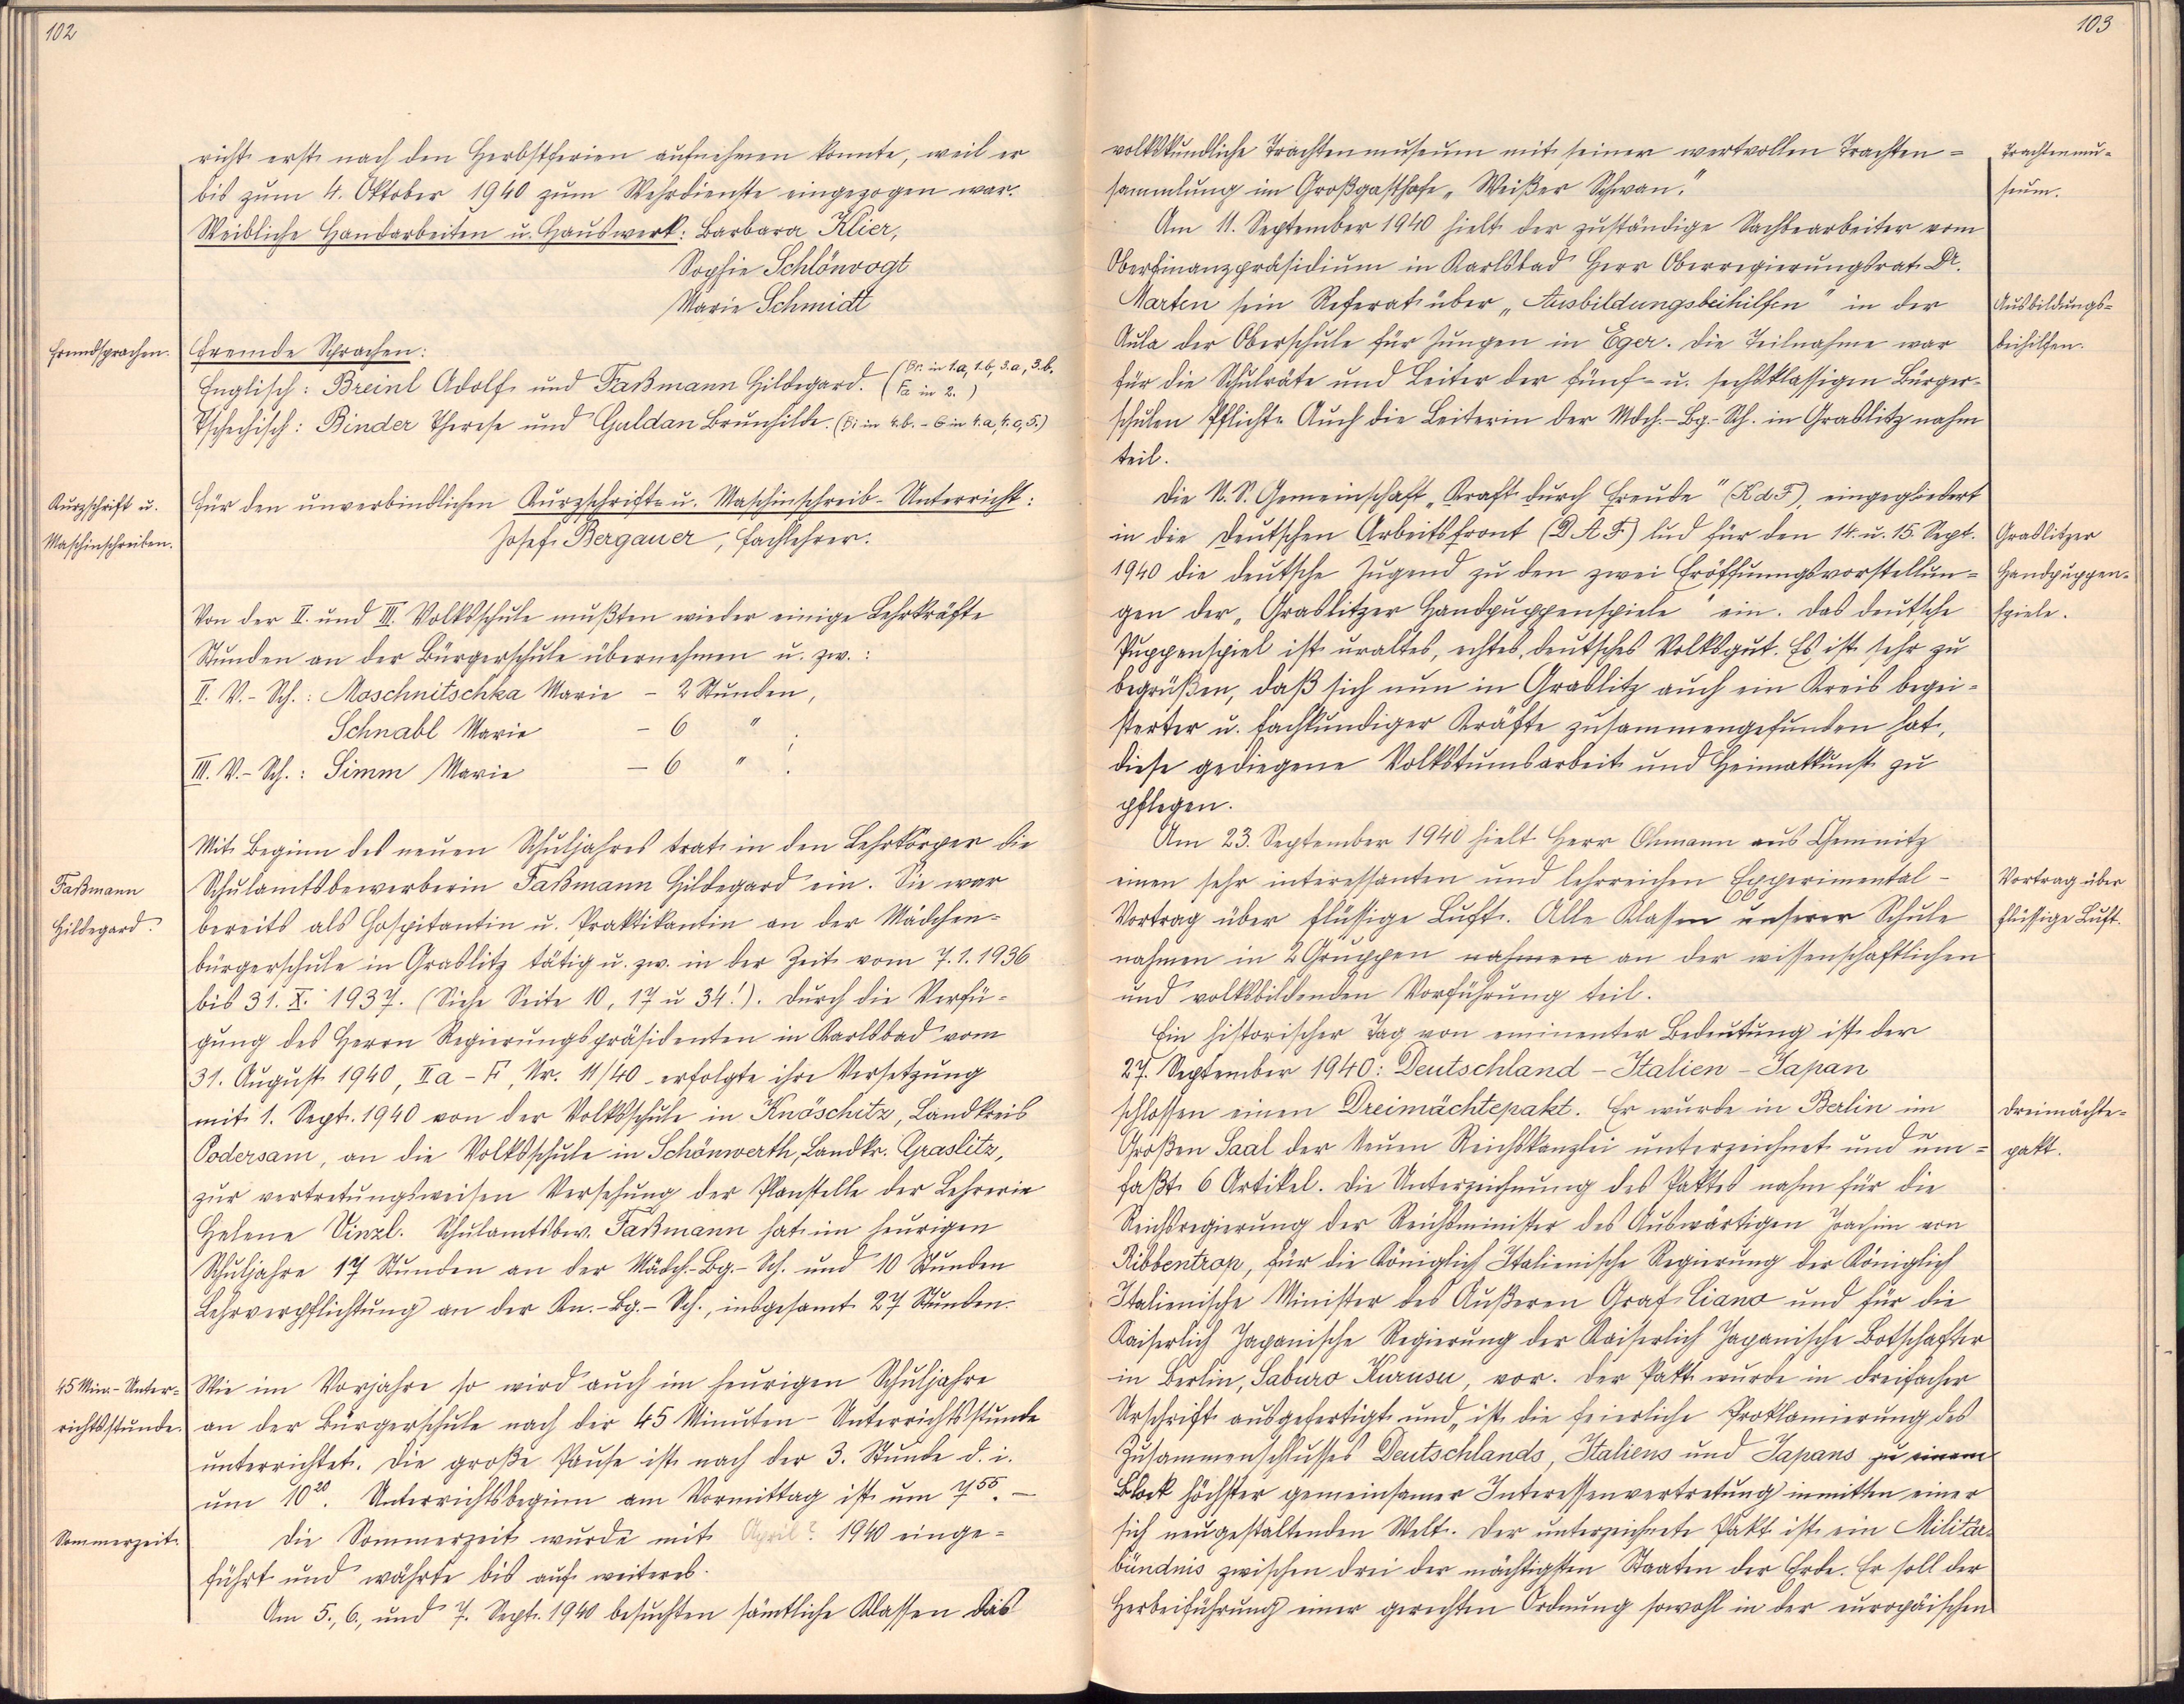 102
richt erst nach den Herbstferien aufnehmen konnte, weil er
bis zum 4. Oktober 1940 zum Wehrdienste eingezogen war.
Weibliche Handarbeiten u. Hauswerk: Barbara Klier,
Sophie Schlönvogt
Marie Schmidt
Fremdsprachen.
Fremde Sprachen:
Englisch: Breinl Adolf und Faßmann Hildegard. (Br. in 1.a, 1.b, 3.a, 3.b.
Fa in 2.)
Tschechisch: Binder Therese und Guldan Brunhilde. (Bi in 4.b. - G in 4.a, 4.c, 5.)
Kurzschrift u.
Maschinschreiben.
Für den unverbindlichen Kurzschrift- u. Maschinschreib-Unterricht:
Josef Bergauer, Fachlehrer.
Von der II. und III. Volksschule mußten wieder einige Lehrkräfte
Stunden an der Bürgerschule übernehmen u. zw.:
II. V.-Sch.: Moschnitschka Marie - 2 Stunden,
Schnabl Marie - 6 " ;
III. V.-Sch.: Simm Marie - 6 " .
Mit Beginn des neuen Schuljahres trat in den Lehrkörper die
Faßmann
Hildegard.
Schulamtsbewerberin Faßmann Hildegard ein. Sie war
bereits als Hospitantin u. Praktikantin an der Mädchen-
bürgerschule in Graslitz tätig u. zw. in der Zeit vom 7.1.1936
bis 31. X. 1937. (Siehe Seite 10, 17 u 34!). Durch die Verfü-
gung des Herrn Regierungspräsidenten in Karlsbad vom
31. August 1940, II a - F, Nr. 11/40 erfolgte ihre Versetzung
mit 1. Sept. 1940 von der Volksschule in Knöschitz, Landkreis
Podersam, an die Volksschule in Schönwerth, Landkr. Graslitz,
zur vertretungsweisen Versehung der Planstelle der Lehrerin
Helene Vinzl. Schulamtsbew. Faßmann hat im heurigen
Schuljahre 17 Stunden an der Mädch.-Bg.-Sch. und 10 Stunden
Lehrverpflichtung an der Kn.-Bg.-Sch., insgesamt 27 Stunden.
45 Min.-Unter-
richtsstunde.
Wie im Vorjahre so wird auch im heurigen Schuljahre
an der Bürgerschule nach der 45 Minuten-Unterrichtsstunde
unterrichtet. Die große Pause ist nach der 3. Stunde d. i.
um 10²⁰. Unterrichtsbeginn am Vormittag ist um 7⁵⁵. -
Sommerzeit.
Die Sommerzeit wurde mit April? 1940 einge-
führt und währte bis auf weiteres.
Am 5., 6., und 7. Sept. 1940 besuchten sämtliche Klassen das
103
volkskundliche Trachtenmuseum mit seiner wertvollen Trachten-
sammlung im Großgasthofe „Weißer Schwan."
Trachtenmu-
seum.
Am 11. September 1940 hielt der zuständige Sachbearbeiter vom
Oberfinanzpräsidium in Karlsbad Herr Oberregierungsrat Dr.
Marten sein Referat über „Ausbildungsbeihilfen" in der
Aula der Oberschule für Jungen in Eger. Die Teilnahme war
Ausbildungs-
beihilfen.
für die Schulräte und Leiter der fünf- u. sechsklassigen Bürger-
schulen Pflicht. Auch die Leiterin der Mdch.-Bg.-Sch. in Graslitz nahm
teil.
Die N. S. Gemeinschaft „Kraft durch Freude" (K d F), eingegliedert
in die Deutschen Arbeitsfront (D A F) lud für den 14. u. 15. Sept.
1940 die deutsche Jugend zu den zwei Eröffnungsvorstellun-
gen der „Graslitzer Handpuppenspiele" ein. Das deutsche
Graslitzer
Handpuppen-
spiele.
Puppenspiel ist uraltes, echtes, deutsches Volksgut. Es ist sehr zu
begrüßen, daß sich nun in Graslitz auch ein Kreis begei-
sterter u. fachkundiger Kräfte zusammengefunden hat,
diese gediegene Volkstumsarbeit und Heimatkunst zu
pflegen.
Am 23. September 1940 hielt Herr Ohmann aus Chemnitz
einen sehr interessanten und lehrreichen Experimental-
Vortrag über flüssige Luft. Alle Klassen unserer Schule
Vortrag über
flüssige Luft.
nahmen in 2 Gruppen nahmen an der wissenschaftlichen
und volksbildenden Vorführung teil.
Ein historischer Tag von eminenter Bedeutung ist der
27. September 1940: Deutschland - Italien - Japan
schlossen einen Dreimächtepakt. Er wurde in Berlin im
Großen Saal der Neuen Reichskanzlei unterzeichnet und um-
Dreimächte-
pakt.
faßt 6 Artikel. Die Unterzeichnung des Paktes nahm für die
Reichsregierung der Reichsminister des Auswärtigen Joachim von
Ribbentrop, für die Königlich Italienische Regierung der Königlich
Italienische Minister des Äußeren Graf Ciano und für die
Kaiserlich Japanische Regierung der Kaiserlich Japanische Botschafter
in Berlin, Saburo Kurusu, vor. Der Pakt wurde in dreifacher
Urschrift ausgefertigt und „ist die feierliche Proklamierung des
Zusammenschlusses Deutschlands, Italiens und Japans zu einem
Block höchster gemeinsamer Interessenvertretung inmitten einer
sich neugestaltenden Welt. Der unterzeichnete Pakt ist ein Militär-
bündnis zwischen drei der mächtigsten Staaten der Erde. Er soll der
Herbeiführung einer gerechten Ordnung sowohl in der europäischen